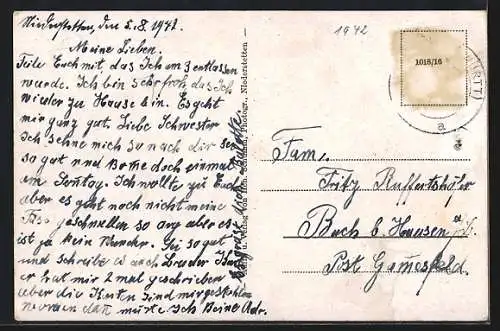 Niederstetten, den 5.8.1942.
Meine Lieben.
Teile Euch mit, das Ich am 3 entlassen
wurde. Ich bin sehr froh, das Ich
wieder zu Hause bin. Es geht
mir ganz gut. Liebe Schwester
Ich sehne mich so nach dir sei
so gut und komme doch einmal
am Sontag. Ich wollte zu Euch
aber es geht noch nicht meine
Füse geschwellen so arg aber es
ist ja kein Wunder. Sei so gut
und schreibe auch Bruder
er hat mir 2 mal geschrieben
aber die Karten sind mir gestohlen
worden dan müste ich seine Adr.
1942
1018/16
a
Photogr., Niederstetten
Fam.
Fritz Ruffertshöfer
Buch b. Hausen
Post Gamesfeld.